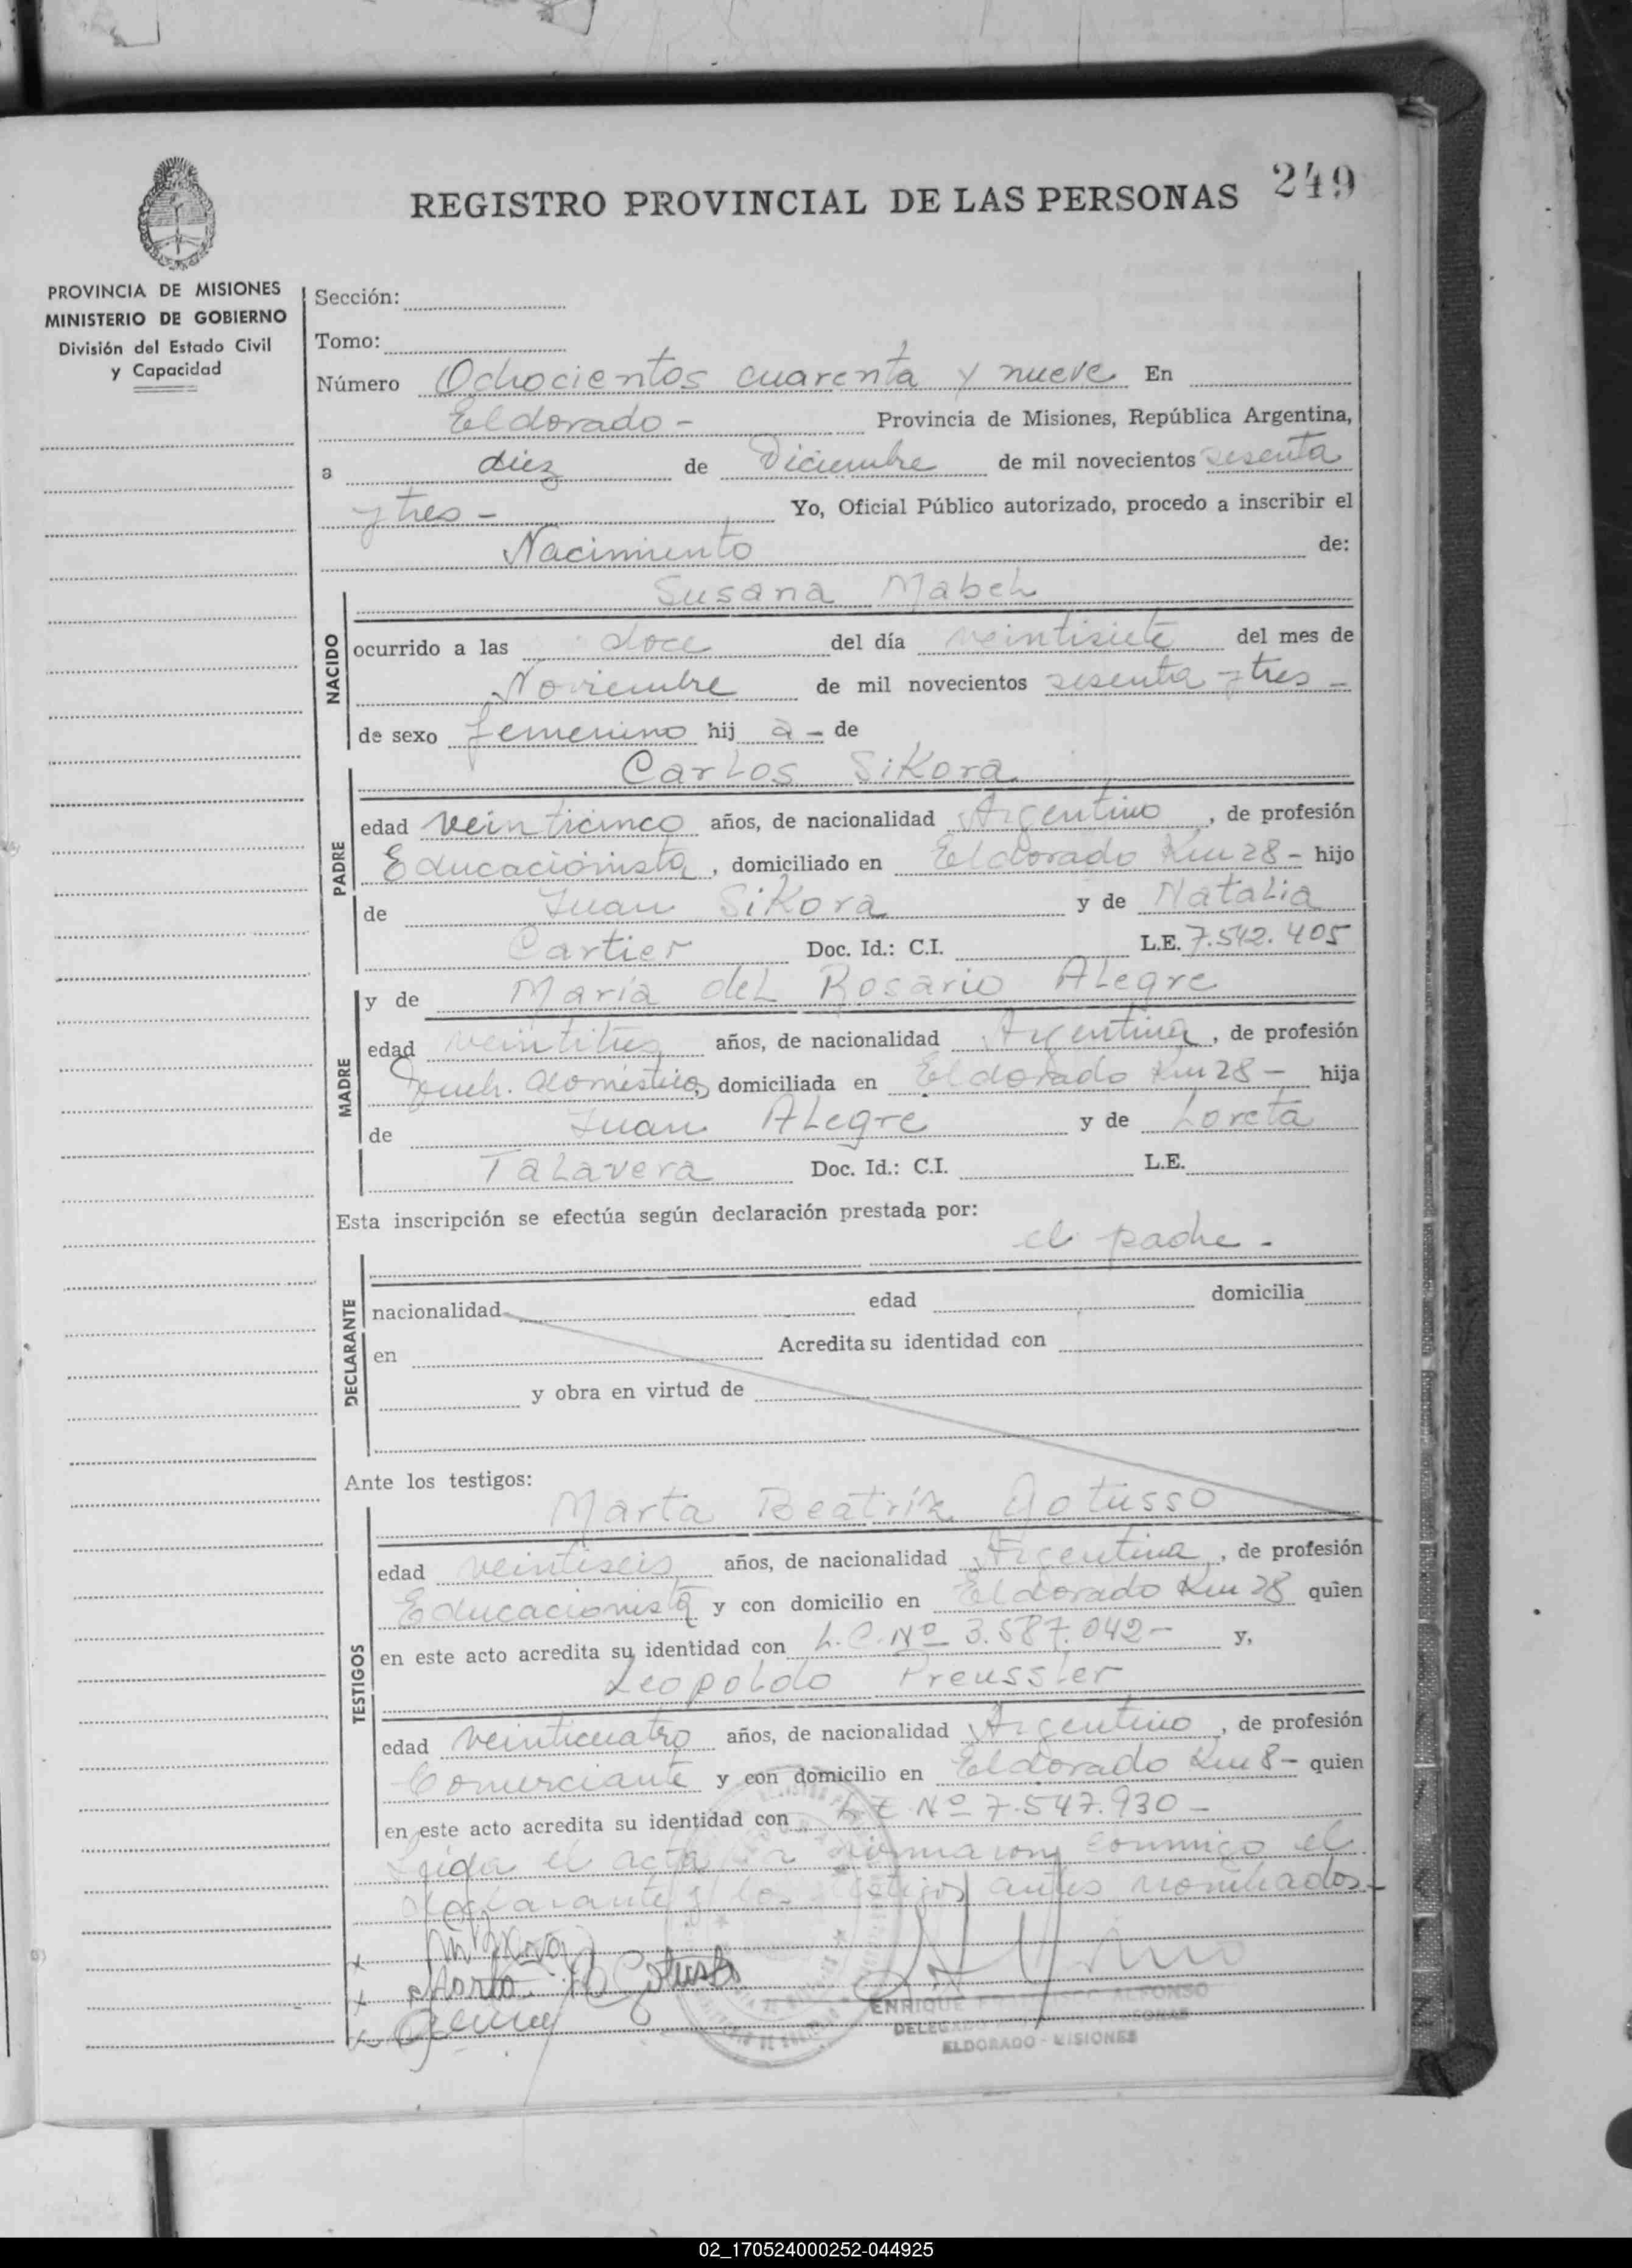 249
REGISTRO PROVINCIAL DE LAS PERSONAS
PROVINCIA DE MISIONES
MINISTERIO DE GOBIERNO
División del Estado Civil
y Capacidad
Sección:
Tomo:
Número Ochocientos cuarenta y nueve En
Eldorado - Provincia de Misiones, República Argentina,
a diez de Diciembre de mil novecientos sesenta
y tres - Yo, Oficial Público autorizado, procedo a inscribir el
Nacimiento de:
NACIDO
Susana Mabel
ocurrido a las doce del día veintisiete del mes de
Noviembre de mil novecientos sesenta y tres -
de sexo femenino hij a - de
PADRE
Carlos Sikora
edad veinticinco años, de nacionalidad Argentino, de profesión
Educacionista, domiciliado en Eldorado Km 28 - hijo
de Juan Sikora y de Natalia
Cartier Doc. Id.: C.I. L.E. 7.542.405
MADRE
y de María del Rosario Alegre
edad veintitres años, de nacionalidad Argentina, de profesión
domésticos domiciliada en Eldorado Km 28 - hija
de Juan Alegre y de Loreta
Talavera Doc. Id.: C.I. L.E.
Esta inscripción se efectúa según declaración prestada por:
el padre -
DECLARANTE
nacionalidad edad domicilia
en Acredita su identidad con
y obra en virtud de
Ante los testigos:
TESTIGOS
Marta Beatriz Gotusso
edad veintiseis años, de nacionalidad Argentina, de profesión
Educacionista y con domicilio en Eldorado Km 28 quien
en este acto acredita su identidad con L.C. Nº 3.587.042 - y,
Leopoldo Preussler
edad veinticuatro años, de nacionalidad Argentino, de profesión
Comerciante y con domicilio en Eldorado Km 8 - quien
en este acto acredita su identidad con L.E. Nº 7.547.930 -
Leída el acta la firmaron conmigo el
declarante y los testigos antes nombrados -
Marta B Gotusso
ENRIQUE FRANCISCO ALFONSO
ELDORADO - MISIONES
02_170524000252-044925